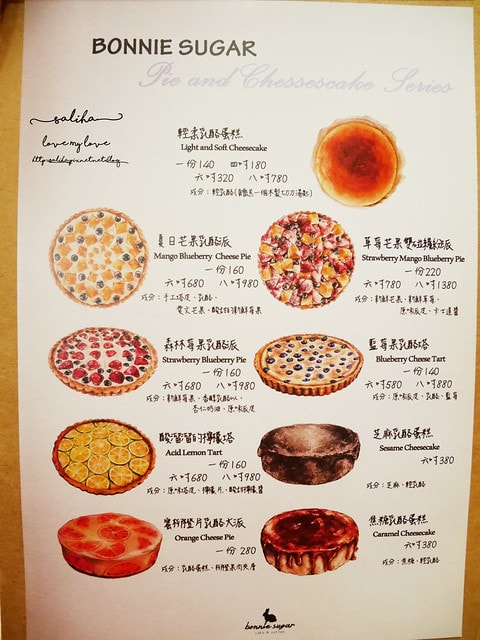 BONNIE SUGAR
Pie and Chessescake Series
saliha
love my love
輕柔乳酪蛋糕
Light and Soft Cheesecake
一份140 四吋180
六吋320 八吋780
夏日芒果乳酪派
Mango Blueberry Cheese Pie
一份160
六吋680 八吋980
成分:手工塔皮、乳酪、
草莓芒果雙拼繽紛派
Strawberry Mango Blueberry Pie
一份220
六吋780 八吋1380
成分:新鮮芒果、新鮮草莓、
原味派皮、卡士達醬
森林莓果乳酪派
Strawberry Blueberry Pie
一份160
六吋680 八吋980
杏仁奶油、原味派皮
藍莓乳酪塔
Blueberry Cheese Tart
一份140
六吋580 八吋880
成分:原味派皮、乳酪、藍莓
酸溜溜的檸檬塔
Acid Lemon Tart
一份160
六吋680 八吋980
成分:原味塔皮、檸檬片、酸甜檸檬醬
芝麻乳酪蛋糕
Sesame Cheesecake
六吋380
成分:芝麻、輕乳酪
蜜柑橙片乳酪大派
Orange Cheese Pie
一份 280
成分:乳酪蛋糕、柑橙果肉夾層
焦糖乳酪蛋糕
Caramel Cheesecake
六吋380
成分:焦糖、輕乳酪
bonnie sugar